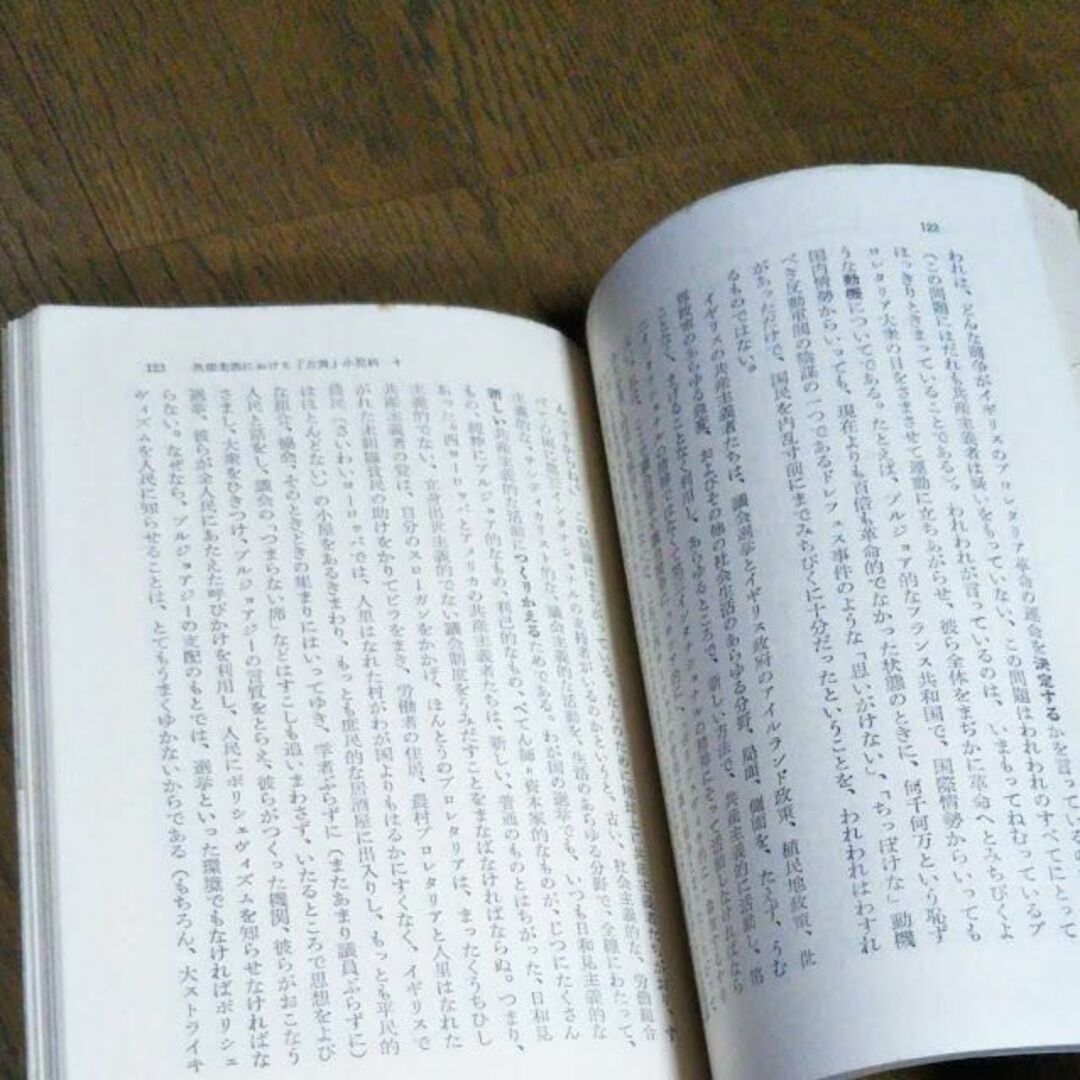 122
われは、どんな萌芽がイギリスのプロレタリア革命の運命を決定するかを言って
(この問題にはだれも共産主義者は疑いをもっていない、この問題はわれわれのすべてにとって
はっきりときまっていることである)。われわれが言っているのは、いまもってねむっているプ
ロレタリア大衆の目をさまさせて運動に立ちあがらせ、彼ら全体をまぢかに革命へとみちびくよ
うな動機についてである。たとえば、ブルジョア的なフランス共和国で、国際情勢からいっても
国内情勢からいっても、現在よりも百倍も革命的でなかった状態のときに、何千何万という恥ず
べき反動軍閥の陰謀の一つであるドレフュス事件のような「思いがけない」、「ちっぽけな」動機
があっただけで、国民を内乱寸前にまでみちびくに十分だったということを、われわれはわすれ
るものではない。
イギリスの共産主義者たちは、議会選挙とイギリス政府のアイルランド政策、植民地政策、世
界政策のあらゆる急変、およびその他の社会生活のあらゆる分野、局面、側面を、たえず、うむ
ことなく、まげることなく利用し、あらゆるところで、新しい方法で、共産主義的に活動し、第
123 共産主義における「左翼」小児病
主義的な、サンディカリスト的な、議会主義的な活動を、生活のあらゆる分野で、全種にわたって、
新しい共産主義的な活動につくりかえるためである。わが国の選挙でも、いつも日和見主義的な
もの、純粋にブルジョア的なもの、利己的なもの、ぺてん師・資本家的なものが、じつにたくさん
あった。西ヨーロッパとアメリカの共産主義者たちは、新しい、普通のものとはちがった、日和見
主義的でない、立身出世主義的でない議会制度をうみだすことをまなばなければならぬ。つまり、
共産主義者の党は、自分のスローガンをかかげ、ほんとうのプロレタリアは、まったくうちひし
がれた未組織貧民の助けをかりてビラをまき、労働者の住居、農村プロレタリアと人里はなれた
農民(さいわいヨーロッパでは、人里はなれた村がわが国よりもはるかにすくなく、イギリスで
はほとんどない)の小屋をあるきまわり、もっとも庶民的な居酒屋に出入りし、もっとも平民的
な組合、協会、そのときどきの集まりにはいってゆき、学者ぶらずに(またあまり議員ぶらずに)
人民と話をし、議会の「つまらない席」などはすこしも追いまわさず、いたるところで思想をよび
さまし、大衆をひきつけ、ブルジョアジーの言質をとらえ、彼らがつくった機関、彼らがおこなう
選挙、彼らが全人民にあたえた呼びかけを利用し、人民にボリシェヴィズムを知らせなければな
らない。なぜなら、ブルジョアジーの支配のもとでは、選挙といった環境でもなければボリシェ
ヴィズムを人民に知らせることは、とてもうまくゆかないからである(もちろん、大ストライキ